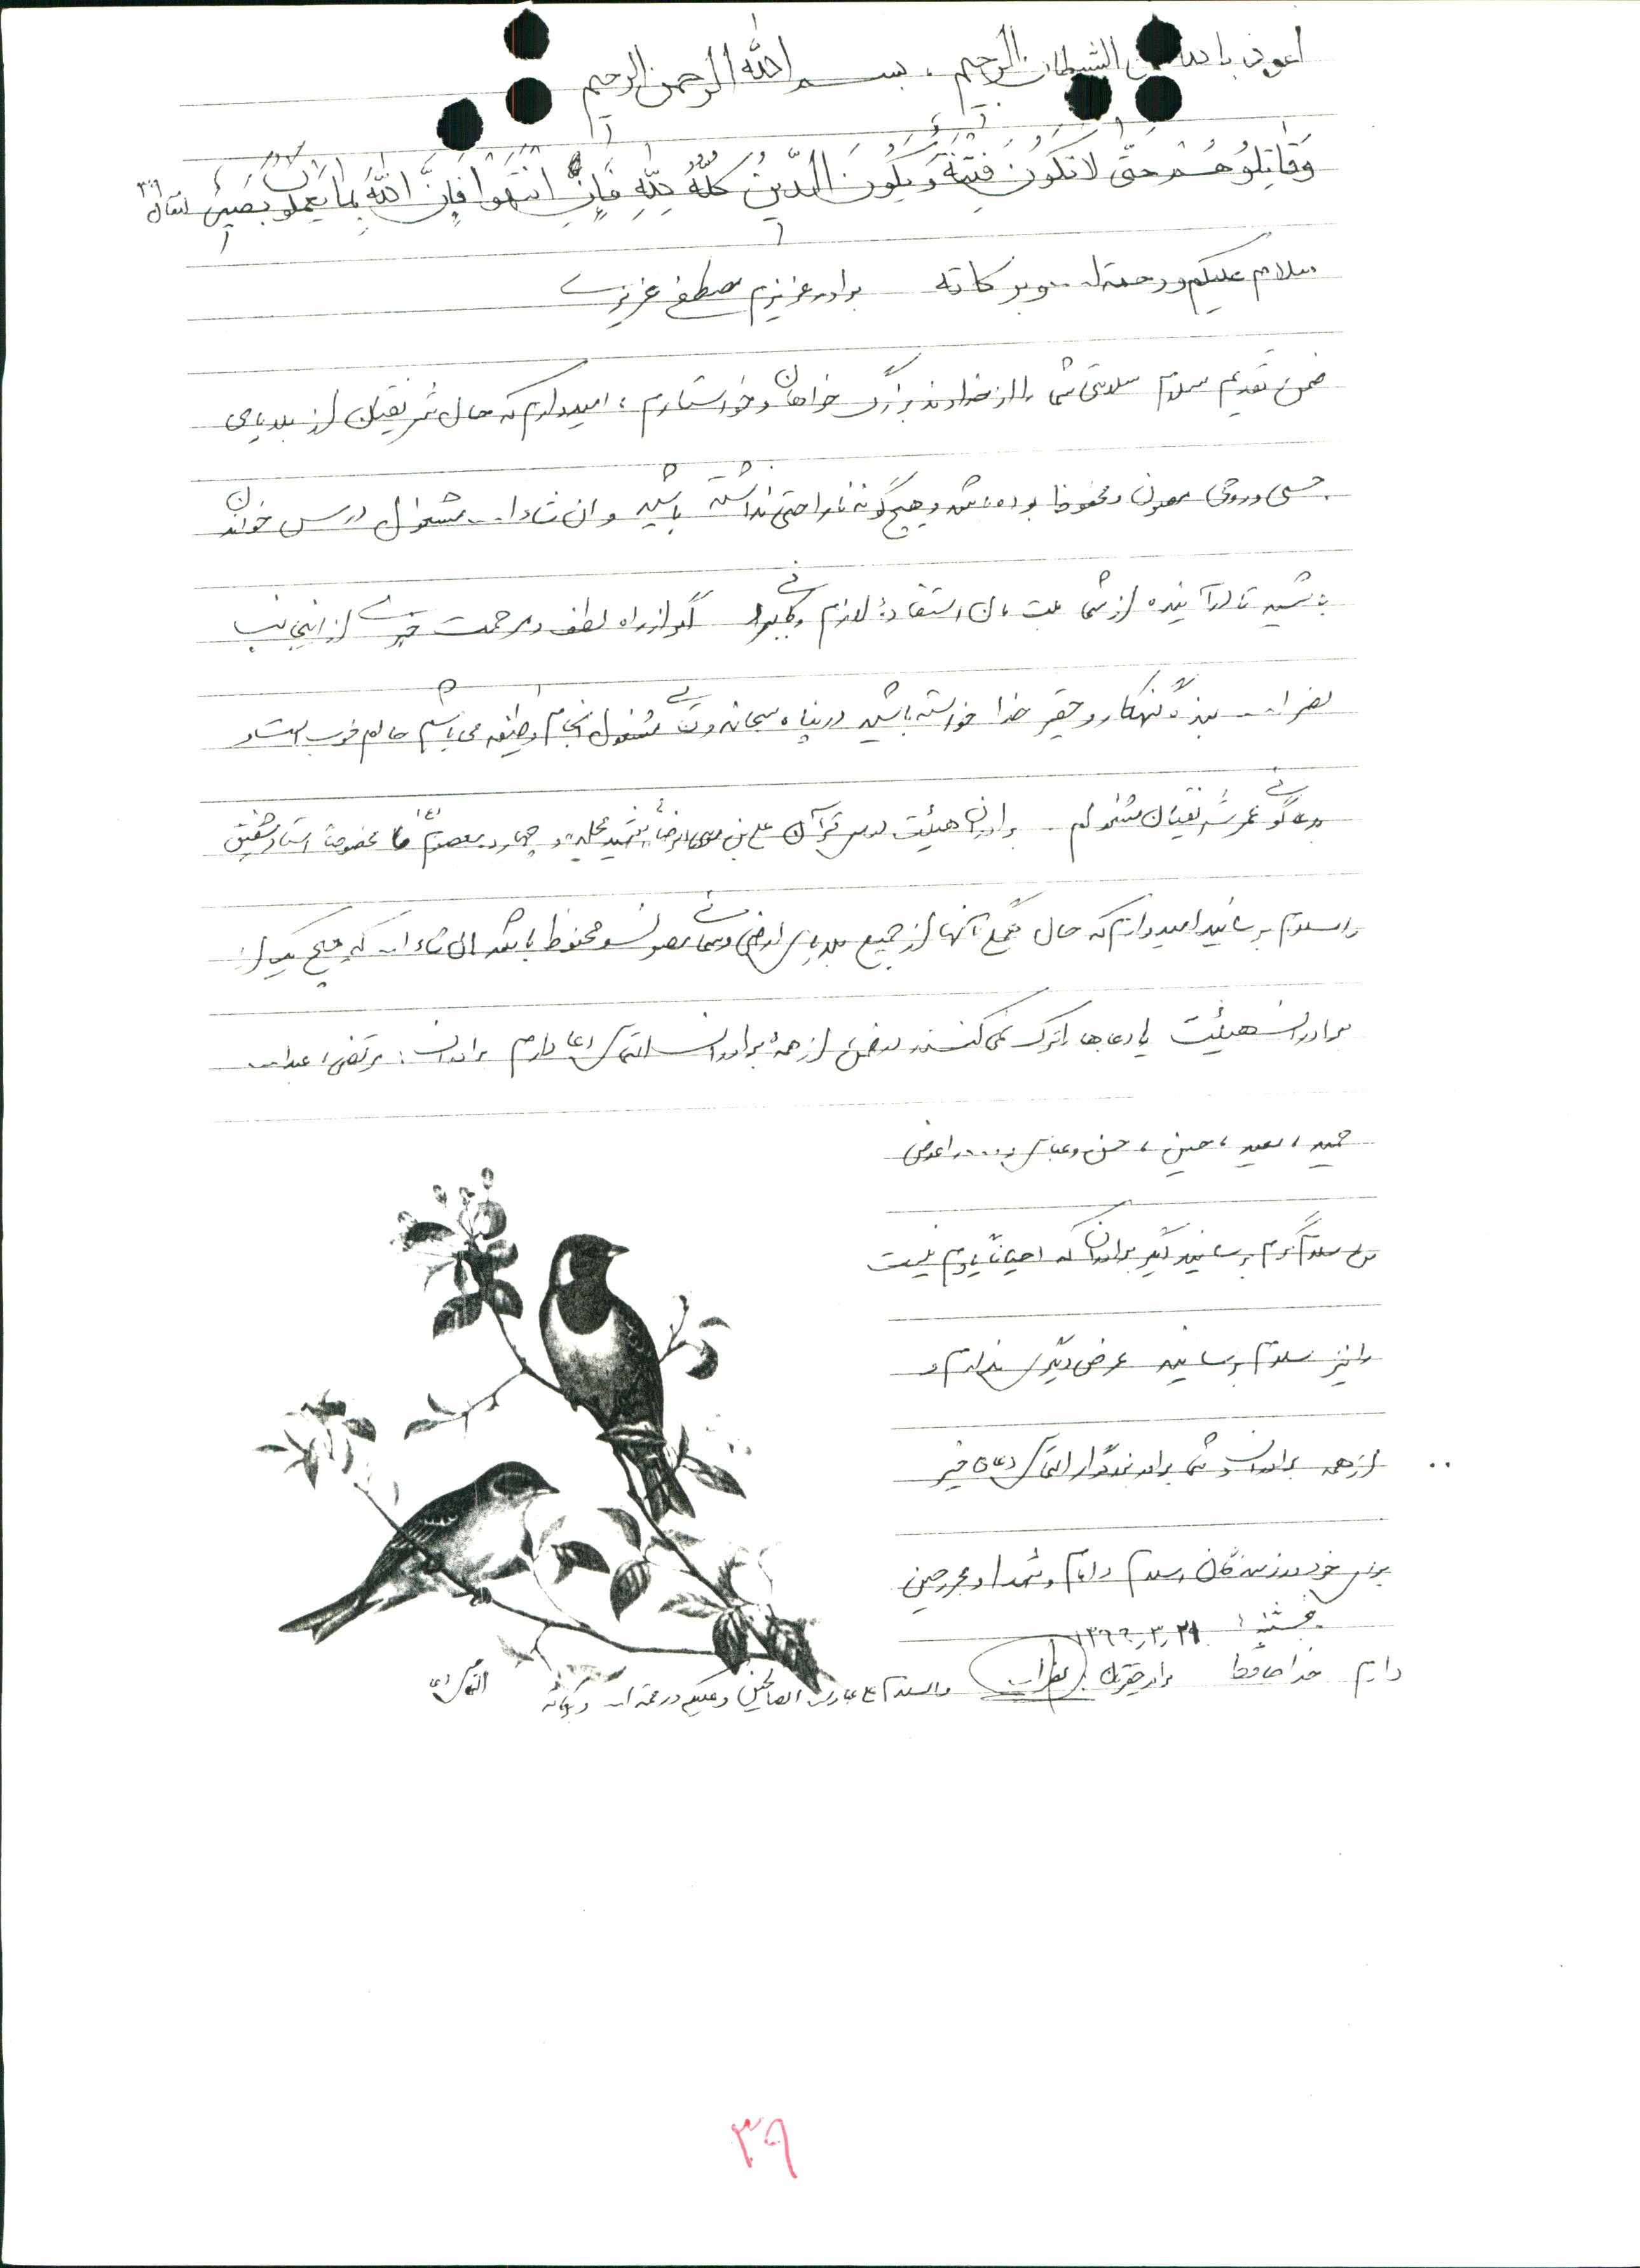 اعوذ بالله من الشیطان الرجیم ، بسم الله الرحمن الرحیم
وَقاتِلوُهُمْ حَتّی لاتَکُونَ فِتْنَةٌ وَیَکُونَ الدّینُ کُلُّهُ لِلّهِ فَاِنِ انْتَهَوْا فَاِنَّ اللّهَ بِما یَعْمَلُونَ بَصیرٌ انفال ۳۹
سلام علیکم و رحمة ا... و برکاته برادر عزیزم مصطفی عزیزی
ضمن تقدیم سلام سلامتی شما را از خداوند بزرگ خواهان و خواستارم ، امیدوارم که حال شریفتان از بلایای
جسمی و روحی مصون و محفوظ بوده باشد و هیچ گونه ناراحتی نداشته باشید و ان شاء ا... مشغول درس خواندن
باشید تا در آینده از شما ملت مان استفادهٔ لازم را ببرد اگر از راه لطف و مرحمت خبری از اینجانب
بندهٔ گنهکار و حقیر خدا خواسته باشید در پناه سبحانه و تعالی مشغول انجام وظیفه می باشم حالم خوب است و
بدعاگوئی عمر شریفتان مشغولم . برادران هیئت درس قرآن علی بن موسی الرضا شهید و چهارده معصوم (ع) مخصوصاً استاد شفیق
را سلام برسانید امیدوارم که حال جمع آنها از جمیع بلایای ارضی و سمائی مصون و محفوظ باشد ان شاء ا... که هیچ یک از
برادران هیئت یا دعاها را ترک نمی کنند در ضمن از همهٔ برادران التماس دعا دارم برادران : مرتضی ، عبدا...
حمید ، سعید ، حسین ، حسن و عباس و ... را عوض
من سلام گرم برسانید دیگر برادران که احیاناً یادم نیست
را نیز سلام برسانید عرض دیگری ندارم و
از همه برادران و شما برادر بزرگوار التماس دعای خیر
برای خود رزمندگان اسلام و امام و شهدا و مجروحین
پنجشنبه ۱۳۶۶٫۳٫۲۱
دارم خداحافظ برادر حقیرتان والسلام علی عبادا... الصالحین و علیکم و رحمة ا... و برکاته التماس دعا
۳۹